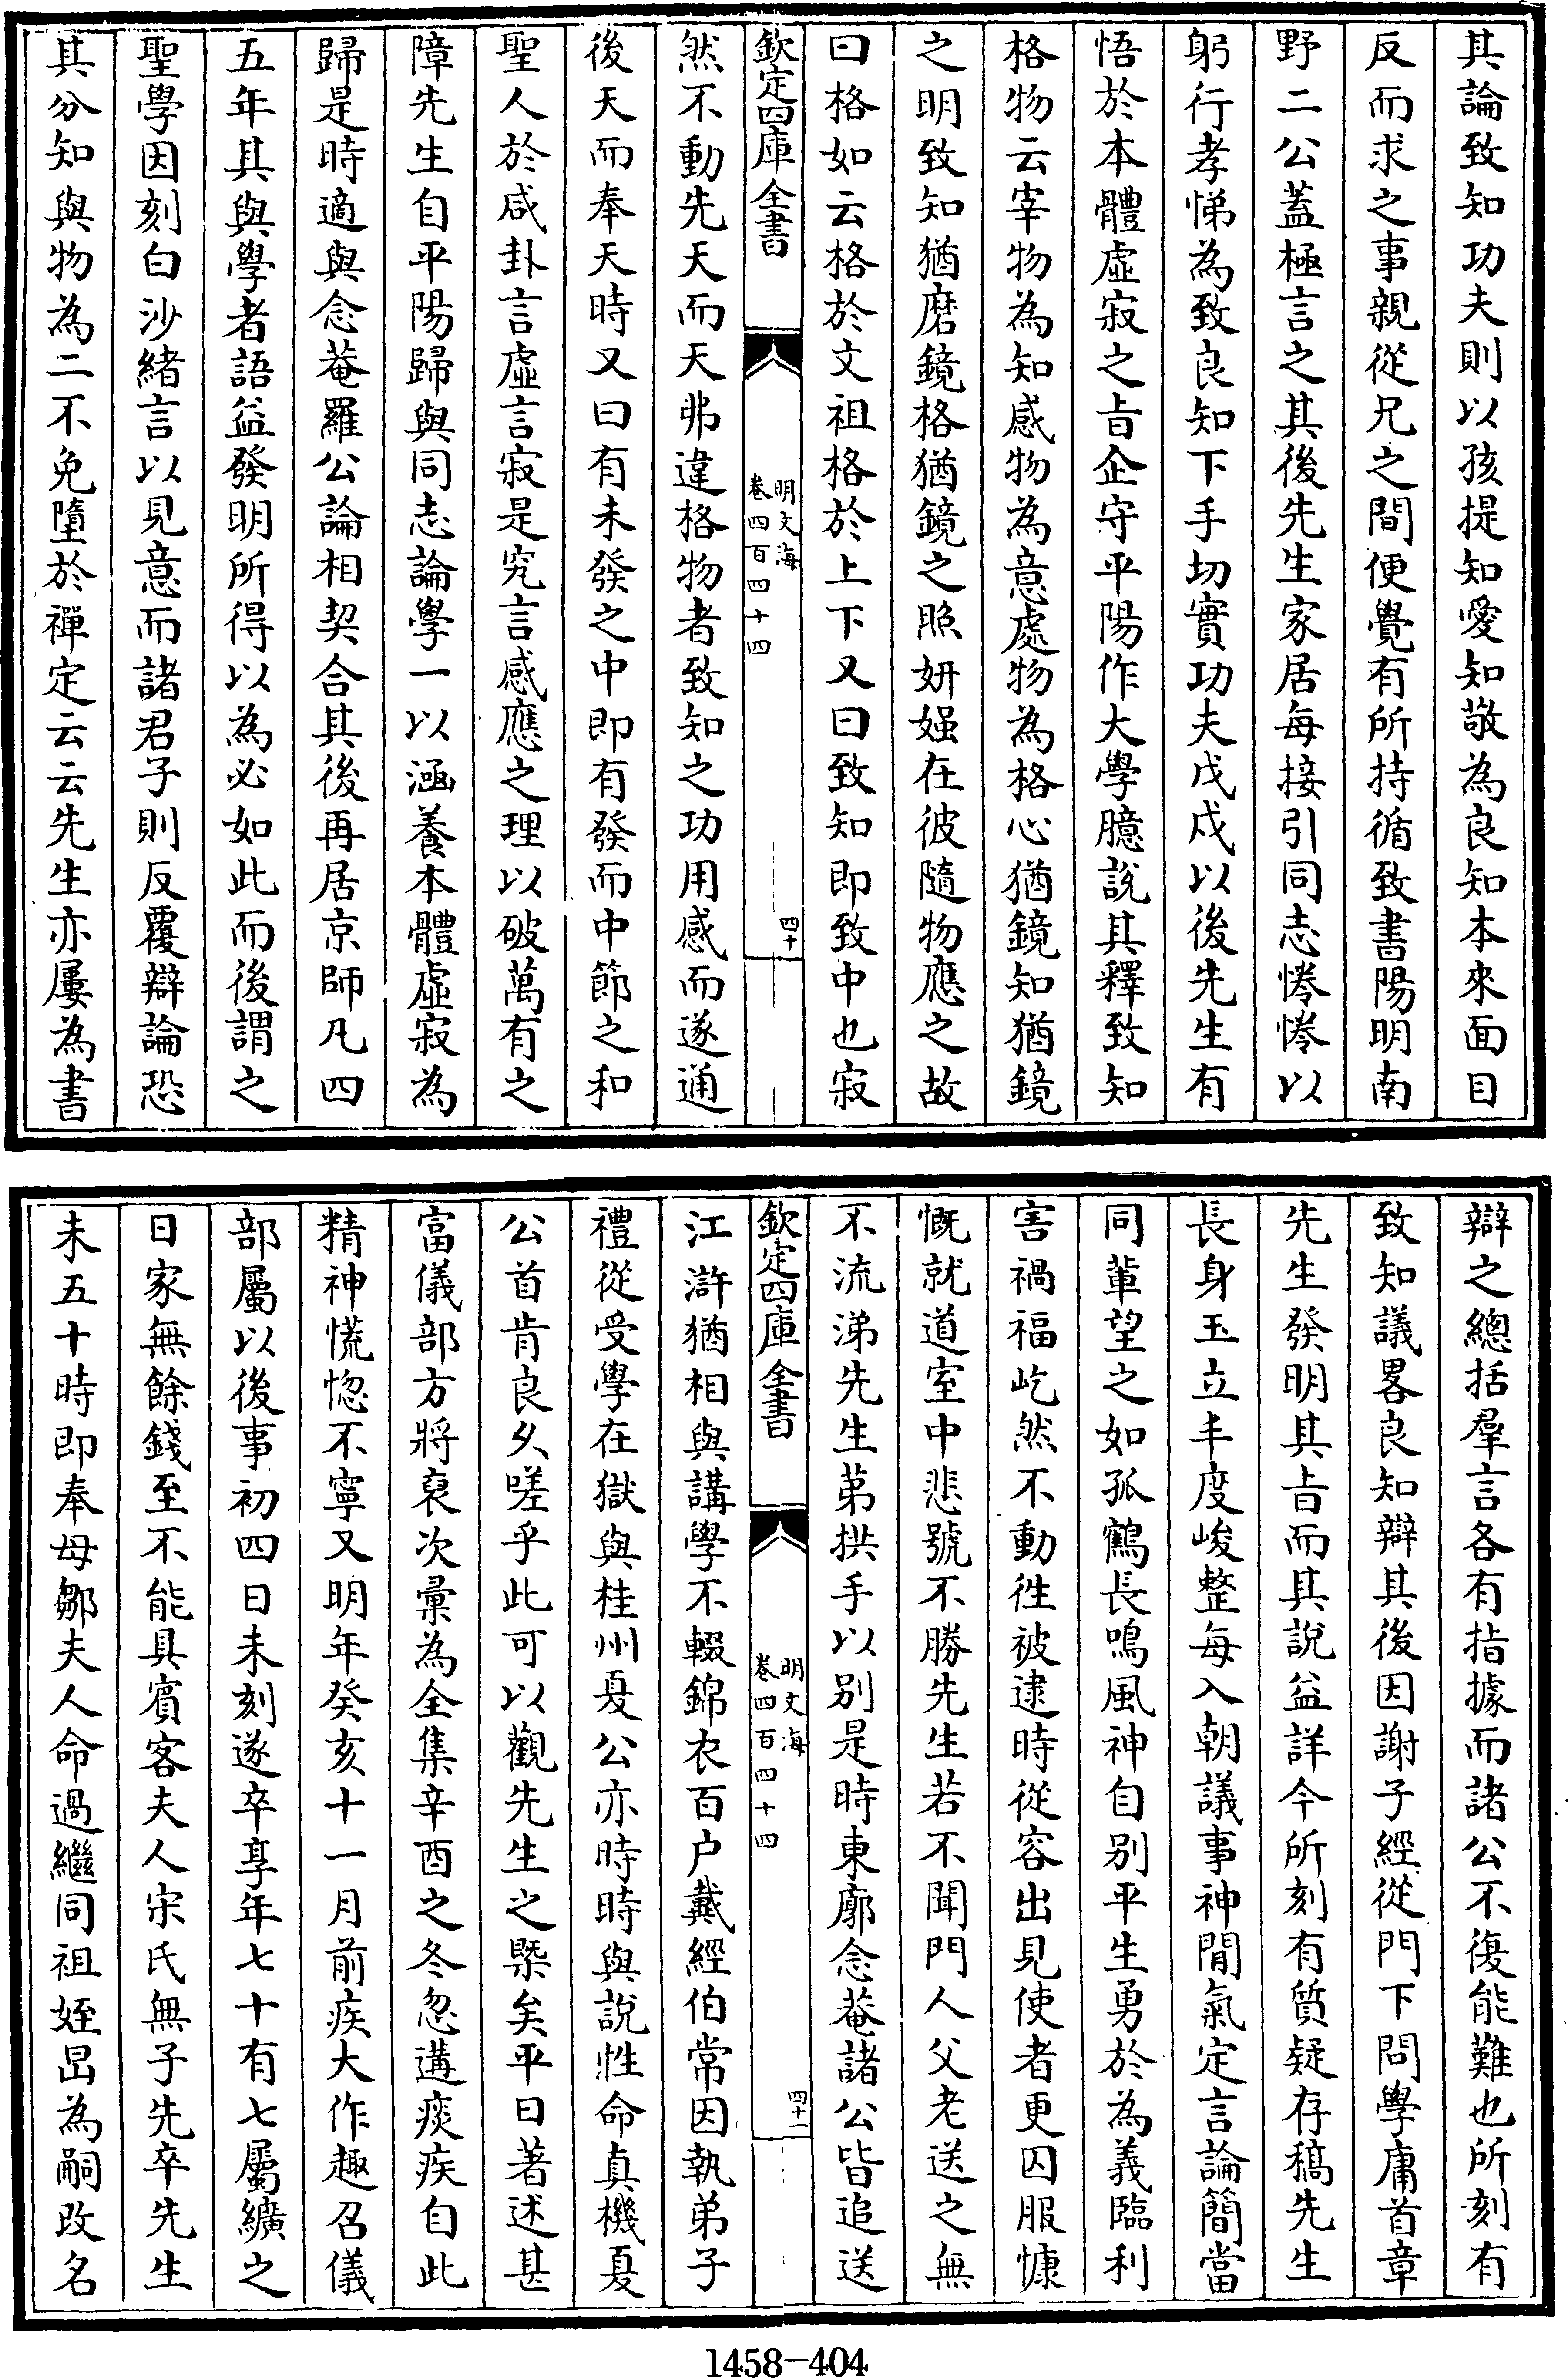 其論致知功夫則以孩提知愛知敬為良知本來面目
反而求之事親從兄之間便覺有所持循致書陽明南
野二公蓋極言之其後先生家居每接引同志惓惓以
躬行孝悌為致良知下手切實功夫戊戌以後先生有
悟於本體虛寂之旨企守平陽作大學臆說其釋致知
格物云宰物為知感物為意處物為格心猶鏡知猶鏡
之明致知猶磨鏡格猶鏡之照妍媸在彼隨物應之故
曰格如云格於文祖格於上下又曰致知即致中也寂
欽定四庫全書
明文海
卷四百四十四
四十
然不動先天而天弗違格物者致知之功用感而遂通
後天而奉天時又曰有未發之中即有發而中節之和
聖人於咸卦言虛言寂是究言感應之理以破萬有之
障先生自平陽歸與同志論學一以涵養本體虛寂為
歸是時適與念菴羅公論相契合其後再居京師凡四
五年其與學者語益發明所得以為必如此而後謂之
聖學因刻白沙緒言以見意而諸君子則反覆辯論恐
其分知與物為二不免墮於禪定云云先生亦屢為書
辯之總括羣言各有指據而諸公不復能難也所刻有
致知議畧良知辯其後因謝子經從門下問學庸首章
先生發明其旨而其說益詳今所刻有質疑存稿先生
長身玉立丰度峻整每入朝議事神閒氣定言論簡當
同軰望之如孤鶴長鳴風神自別平生勇於為義臨利
害禍福屹然不動徃被逮時從容出見使者更囚服慷
慨就道室中悲號不勝先生若不聞門人父老送之無
不流涕先生第拱手以別是時東廓念菴諸公皆追送
欽定四庫全書
明文海
卷四百四十四
四十一
江滸猶相與講學不輟錦衣百户戴經伯常因執弟子
禮從受學在獄與桂州夏公亦時時與說性命真機夏
公首肯良久嗟乎此可以觀先生之槩矣平日著述甚
富儀部方將裒次彙為全集辛酉之冬忽遘痰疾自此
精神慌惚不寧又明年癸亥十一月前疾大作趣召儀
部屬以後事初四日未刻遂卒享年七十有七屬纊之
日家無餘錢至不能具賓客夫人宋氏無子先卒先生
未五十時即奉母鄒夫人命過繼同祖姪昆為嗣改名
1458-404